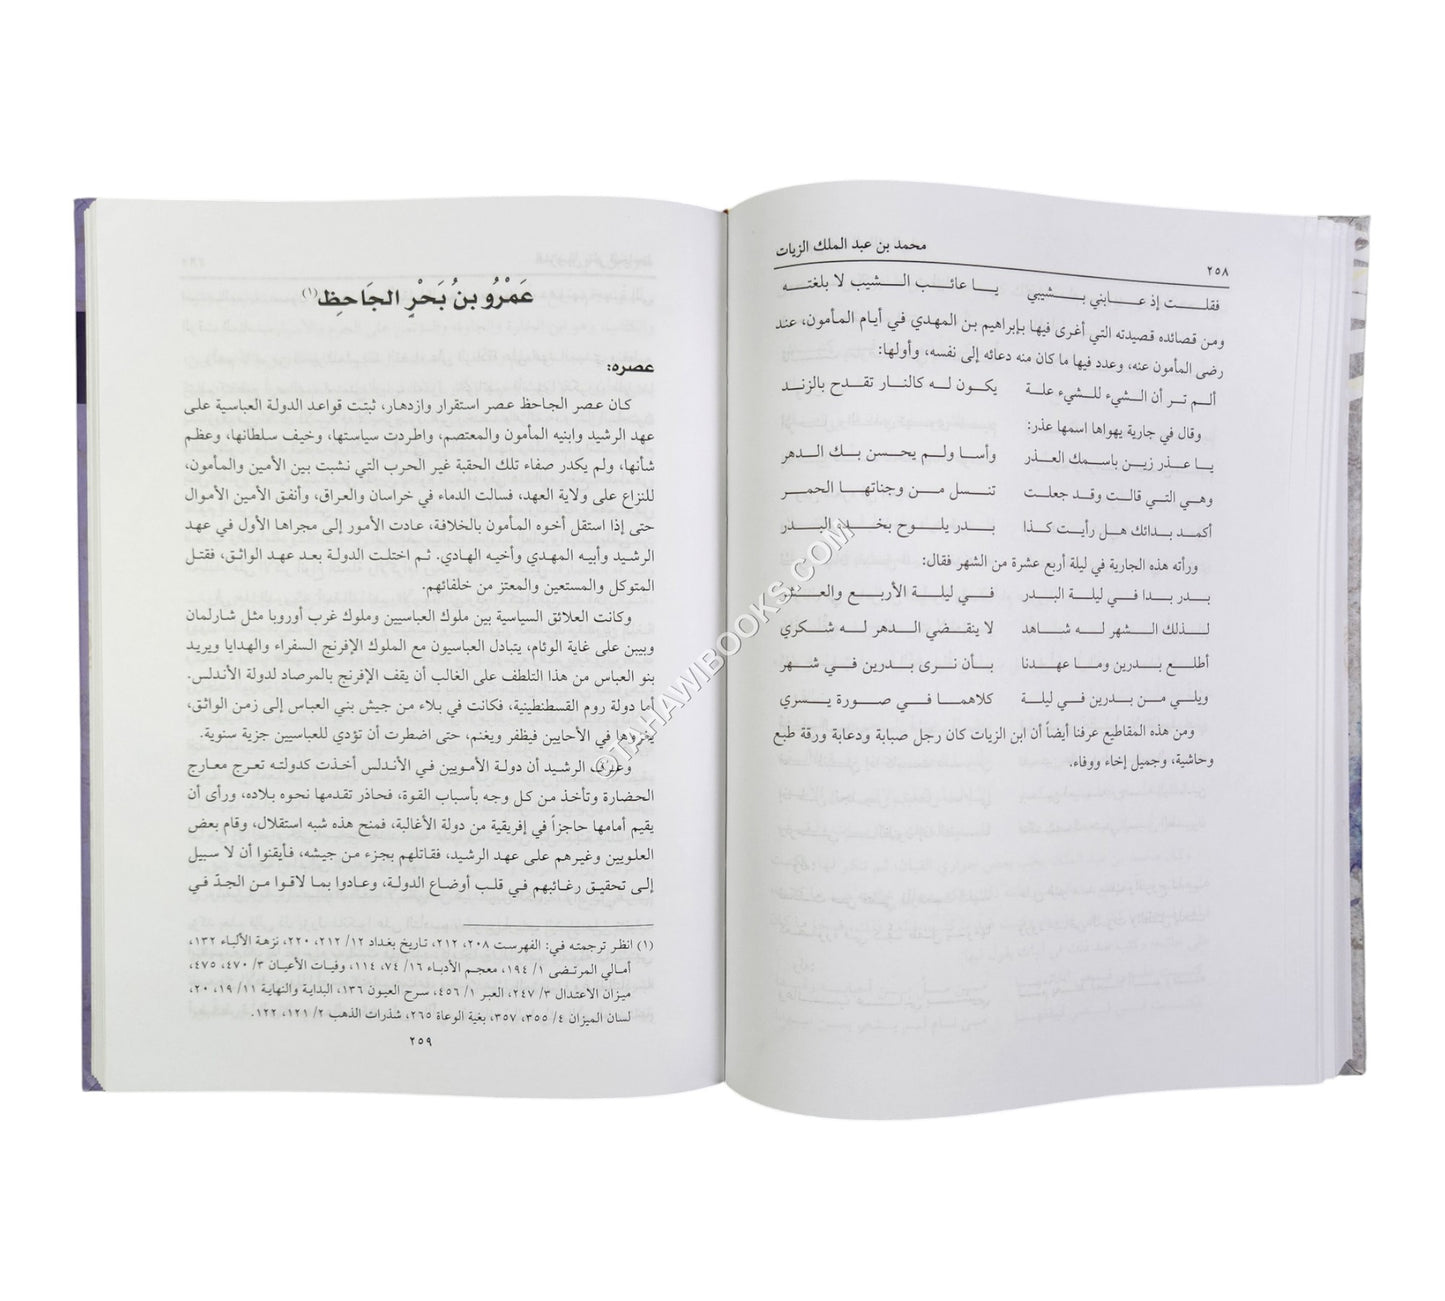 ٢٥٨
محمد بن عبد الملك الزيات
فقلـــت إذ عـــابني بـــشيبي يـــا عائـــب الـــشيب لا بلغتـــه
ومن قصائده قصيدته التي أغرى فيها بإبراهيم بن المهدي في أيام المأمون، عند
رضى المأمون عنه، وعدد فيها ما كان منه دعائه إلى نفسه، وأولها:
ألـم تـر أن الـشيء للـشيء علـة يكـون لـه كالنـار تقـدح بالزنـد
وقال في جارية يهواها اسمها عذر:
يـا عـذر زيـن باسـمك العـذر وأسـا ولـم يحـسن بـك الـدهر
وهـي التـي قالـت وقـد جعلـت تنـسل مـن وجناتهـا الخمـر
أكمـد بـدائك هـل رأيـت كـذا بـدر يلـوح بخـده البـدر
ورأته هذه الجارية في ليلة أربع عشرة من الشهر فقال:
بـدر بـدا فـي ليلـة البـدر فـي ليلـة الأربـع والعـشر
لـذلك الـشهر لـه شـاهد لا ينقـضي الـدهر لـه شـكري
أطلـع بـدرين ومـا عهـدنا بـأن نـرى بـدرين فـي شـهر
ويلـي مـن بـدرين فـي ليلـة كلاهمـا فـي صـورة يـسري
ومن هذه المقاطيع عرفنا أيضاً أن ابن الزيات كان رجل صبابة ودعابة ورقة طبع
وحاشية، وجميل إخاء ووفاء.
عَمْرُو بنُ بَحْرٍ الجَاحِظِ(١)
عصره:
كـان عـصر الجـاحظ عـصر استقرار وازدهـار، ثبتت قواعد الدولة العباسية على
عهد الرشيد وابنيه المأمون والمعتصم، واطردت سياستها، وخيف سلطانها، وعظم
شأنها، ولم يكدر صفاء تلك الحقبة غير الحرب التي نشبت بين الأمين والمأمون،
للنزاع على ولاية العهد، فسالت الدماء في خراسان والعراق، وأنفق الأمين الأموال
حتى إذا استقل أخوه المأمون بالخلافة، عادت الأمور إلى مجراها الأول في عهد
الرشيد وأبيه المهدي وأخيه الهادي. ثم اختلت الدولة بعد عهد الواثق، فقتل
المتوكل والمستعين والمعتز من خلفائهم.
وكانت العلائق السياسية بين ملوك العباسيين وملوك غرب أوروبا مثل شارلمان
وبيبن على غاية الوئام، يتبادل العباسيون مع الملوك الإفرنج السفراء والهدايا ويريد
بنو العباس من هذا التلطف على الغالب أن يقف الإفرنج بالمرصاد لدولة الأندلس.
أما دولة روم القسطنطينية، فكانت في بلاء من جيش بني العباس إلى زمن الواثق،
يغزوها في الأحايين فيظفر ويغنم، حتى اضطرت أن تؤدي للعباسيين جزية سنوية.
وعـرف الرشيد أن دولة الأمويين في الأندلس أخذت كدولته تعرج معارج
الحضارة وتأخذ من كل وجه بأسباب القوة، فحاذر تقدمها نحوه بلاده، ورأى أن
يقيم أمامها حاجزاً في إفريقية من دولة الأغالبة، فمنح هذه شبه استقلال، وقام بعض
العلويين وغيرهم على عهد الرشيد، فقاتلهم بجزء من جيشه، فأيقنوا أن لا سبيل
إلى تحقيق رغائبهم في قلب أوضاع الدولة، وعادوا بما لاقوا من الجدّ في
(١) انظر ترجمته في: الفهرست ٢٠٨، ٢١٢، تاريخ بغداد ١٢/ ٢١٢، ٢٢٠، نزهة الألباء ١٣٢،
أمالي المرتضى ١/ ١٩٤، معجم الأدباء ١٦/ ٧٤، ١١٤، وفيات الأعيان ٣/ ٤٧٠، ٤٧٥،
ميزان الاعتدال ٣/ ٢٤٧، العبر ١/ ٤٥٦، سرح العيون ١٣٦، البداية والنهاية ١١/ ١٩، ٢٠،
لسان الميزان ٤/ ٣٥٥، ٣٥٧، بغية الوعاة ٢٦٥، شذرات الذهب ٢/ ١٢١، ١٢٢.
٢٥٩
©TAHAWIBOOKS.COM